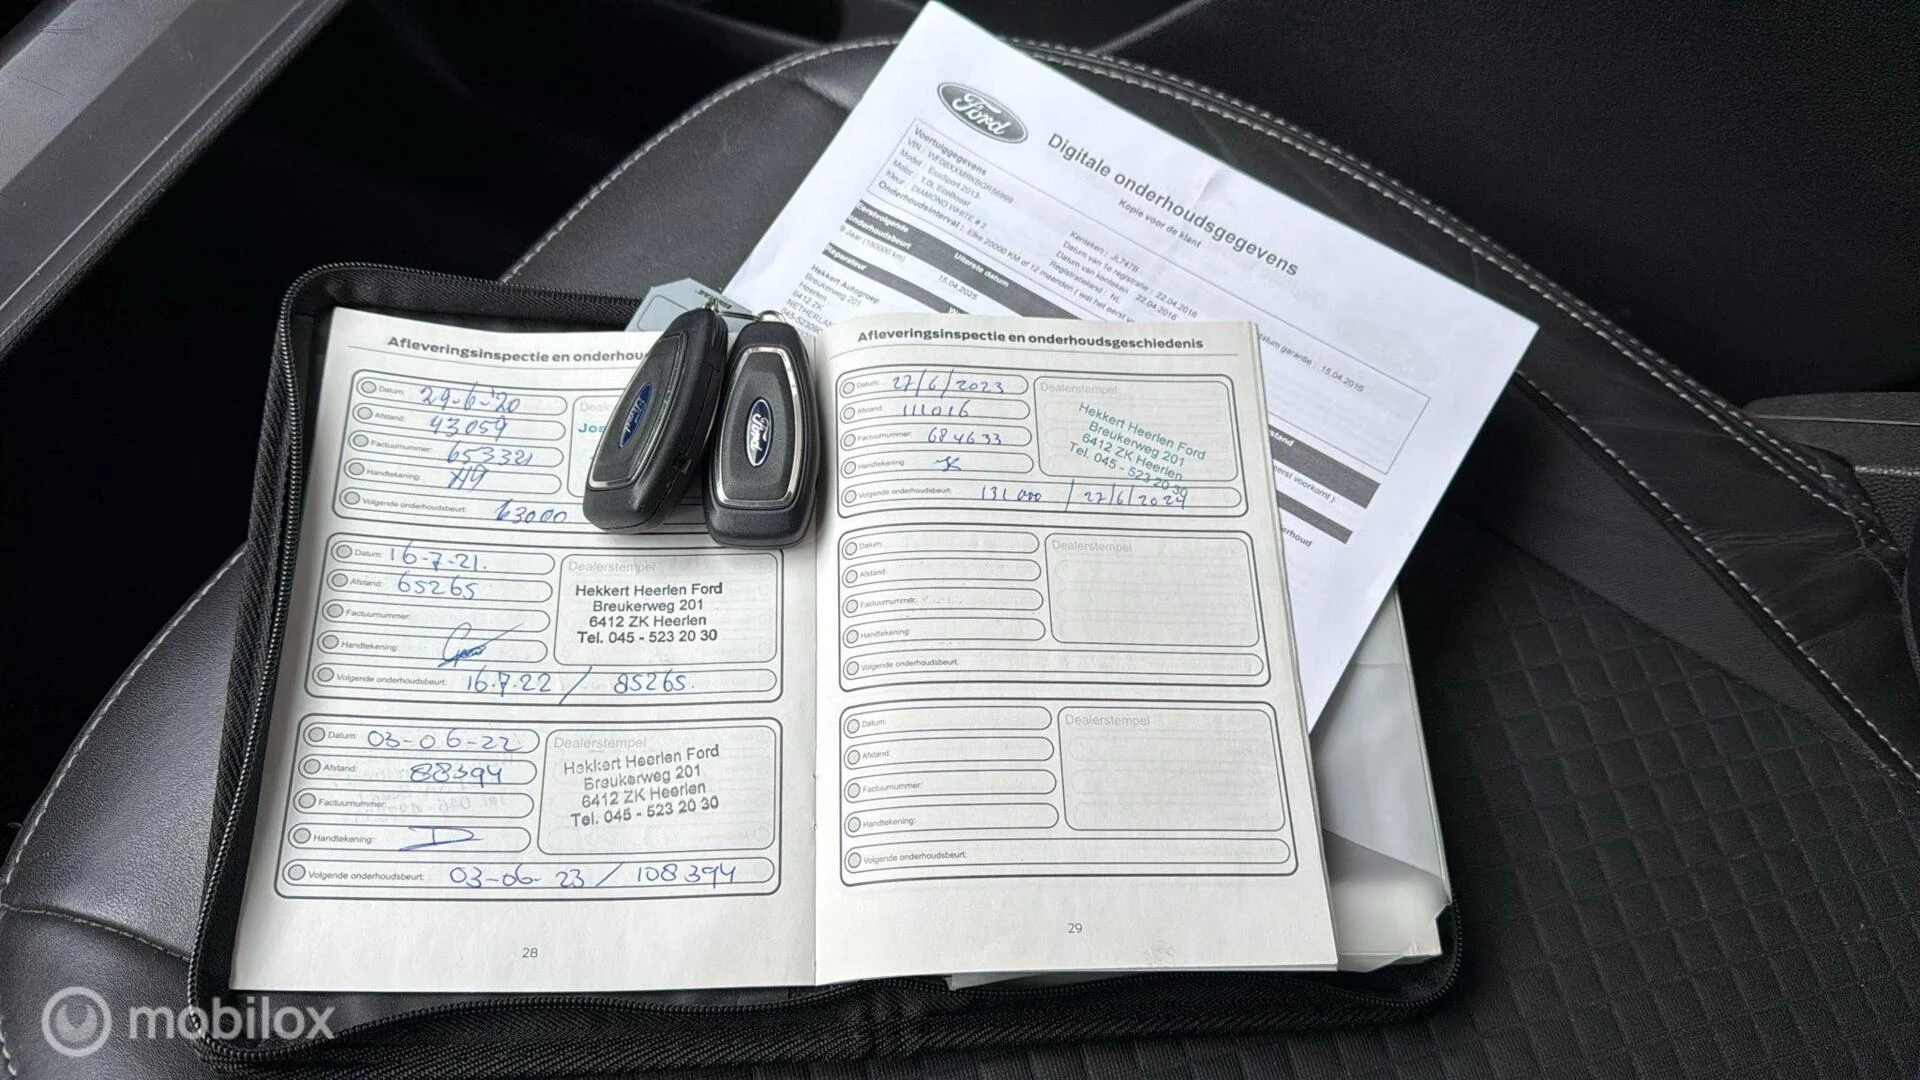 Ford
Digitale onderhoudsgegevens
Kopie voor de klant
Voertuiggegevens
Model : EcoSport 2013-
Motor : 1.0L EcoBoost
Kleur : DIAMOND WHITE # 2
Onderhoudsinterval : Elke 20000 KM of 12 maanden ( wat het eerst
Kenteken : JL747B
Datum van 1e registratie : 22.04.2016
Datum van kenteken : 22.04.2016
Registratieland : NL
datum garantie : 15.04.2016
Eerstvolgende
onderhoudsbeurt
Uiterste datum
9 Jaar (180000 km)
15.04.2025
Reparateur
Hekkert Autogroep
Breukerweg 201
Heerlen
6412 ZK
eerst voorkomt )
Afleveringsinspectie en onderhou
Datum: 29-6-'20
Afstand: 43059
Factuurnummer: 653321
Handtekening:
Volgende onderhoudsbeurt: 63000
Ford
Ford
Datum: 16-7-21.
Afstand: 65265
Factuurnummer:
Handtekening:
Volgende onderhoudsbeurt: 16.7.22 / 85265.
Dealerstempel
Hekkert Heerlen Ford
Breukerweg 201
6412 ZK Heerlen
Tel. 045 - 523 20 30
Datum: 03-06-22
Afstand: 88394
Factuurnummer:
Handtekening:
Volgende onderhoudsbeurt: 03-06-23 / 108394
Dealerstempel
Hekkert Heerlen Ford
Breukerweg 201
6412 ZK Heerlen
Tel. 045 - 523 20 30
28
Afleveringsinspectie en onderhoudsgeschiedenis
Datum: 27/6/2023
Afstand: 111016
Factuurnummer: 684633
Handtekening:
Volgende onderhoudsbeurt: 131000 / 27/6/2024
Dealerstempel
Hekkert Heerlen Ford
Breukerweg 201
6412 ZK Heerlen
Tel. 045 - 523 20 30
Datum:
Afstand:
Factuurnummer:
Handtekening:
Volgende onderhoudsbeurt:
Dealerstempel
Datum:
Afstand:
Factuurnummer:
Handtekening:
Volgende onderhoudsbeurt:
Dealerstempel
29
mobilox